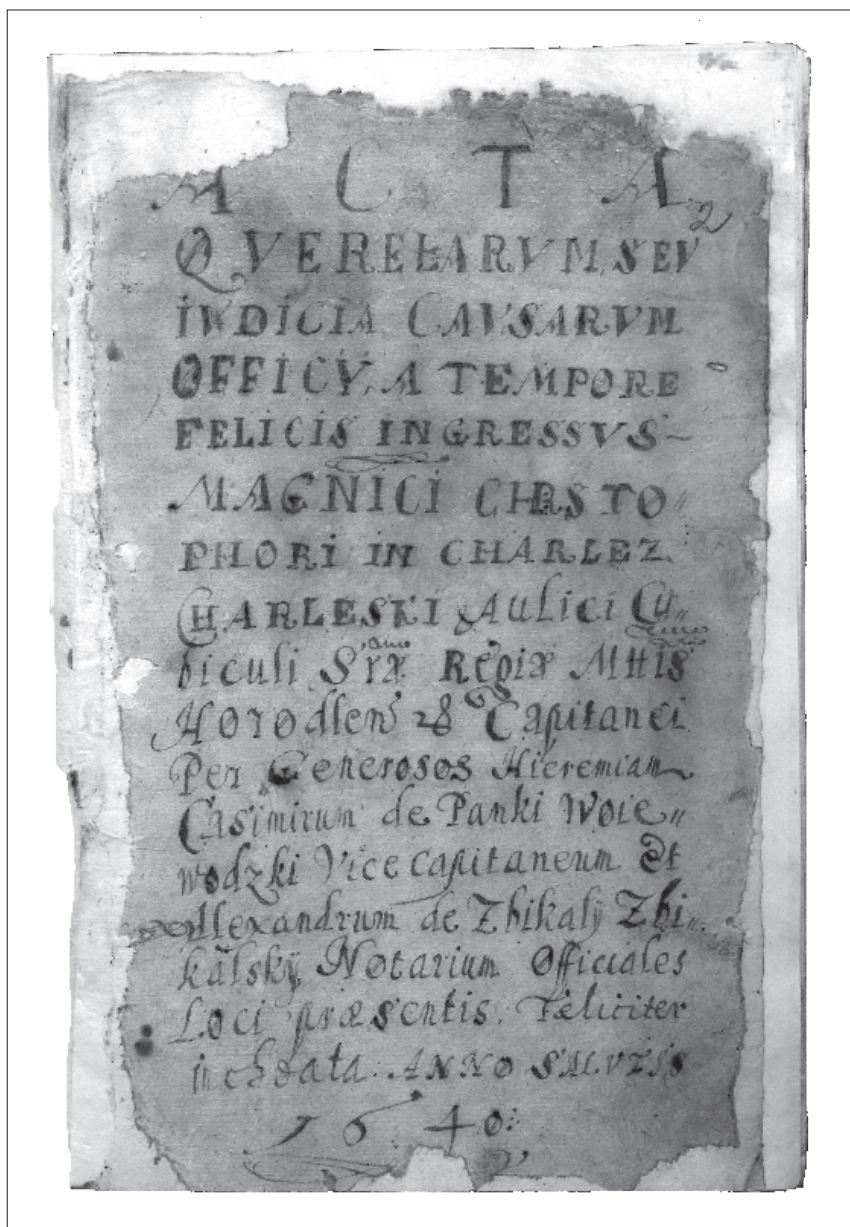 ACTA 2
QVERELARVM, SEV
IVDICIA CAVSARVM
OFFICY, A TEMPORE
FELICIS INGRESSVS~
MAGNICI CHRSTO„
PHORI IN CHARLEZ.
CHARLESKI Aulici Cu„
biculi Sræ Regiæ Mttis
Horodlen̄ Capitanei
Per Generosos Hieremiam
Casimirum de Panki Woie„
wodzki Vice capitaneum Et
Allexandrum de Zbikaly Zbi„
kalsky Notarium Officiales
Loci præsentis. Fæliciter
inchoata. ANNO SALVTIS
1640: